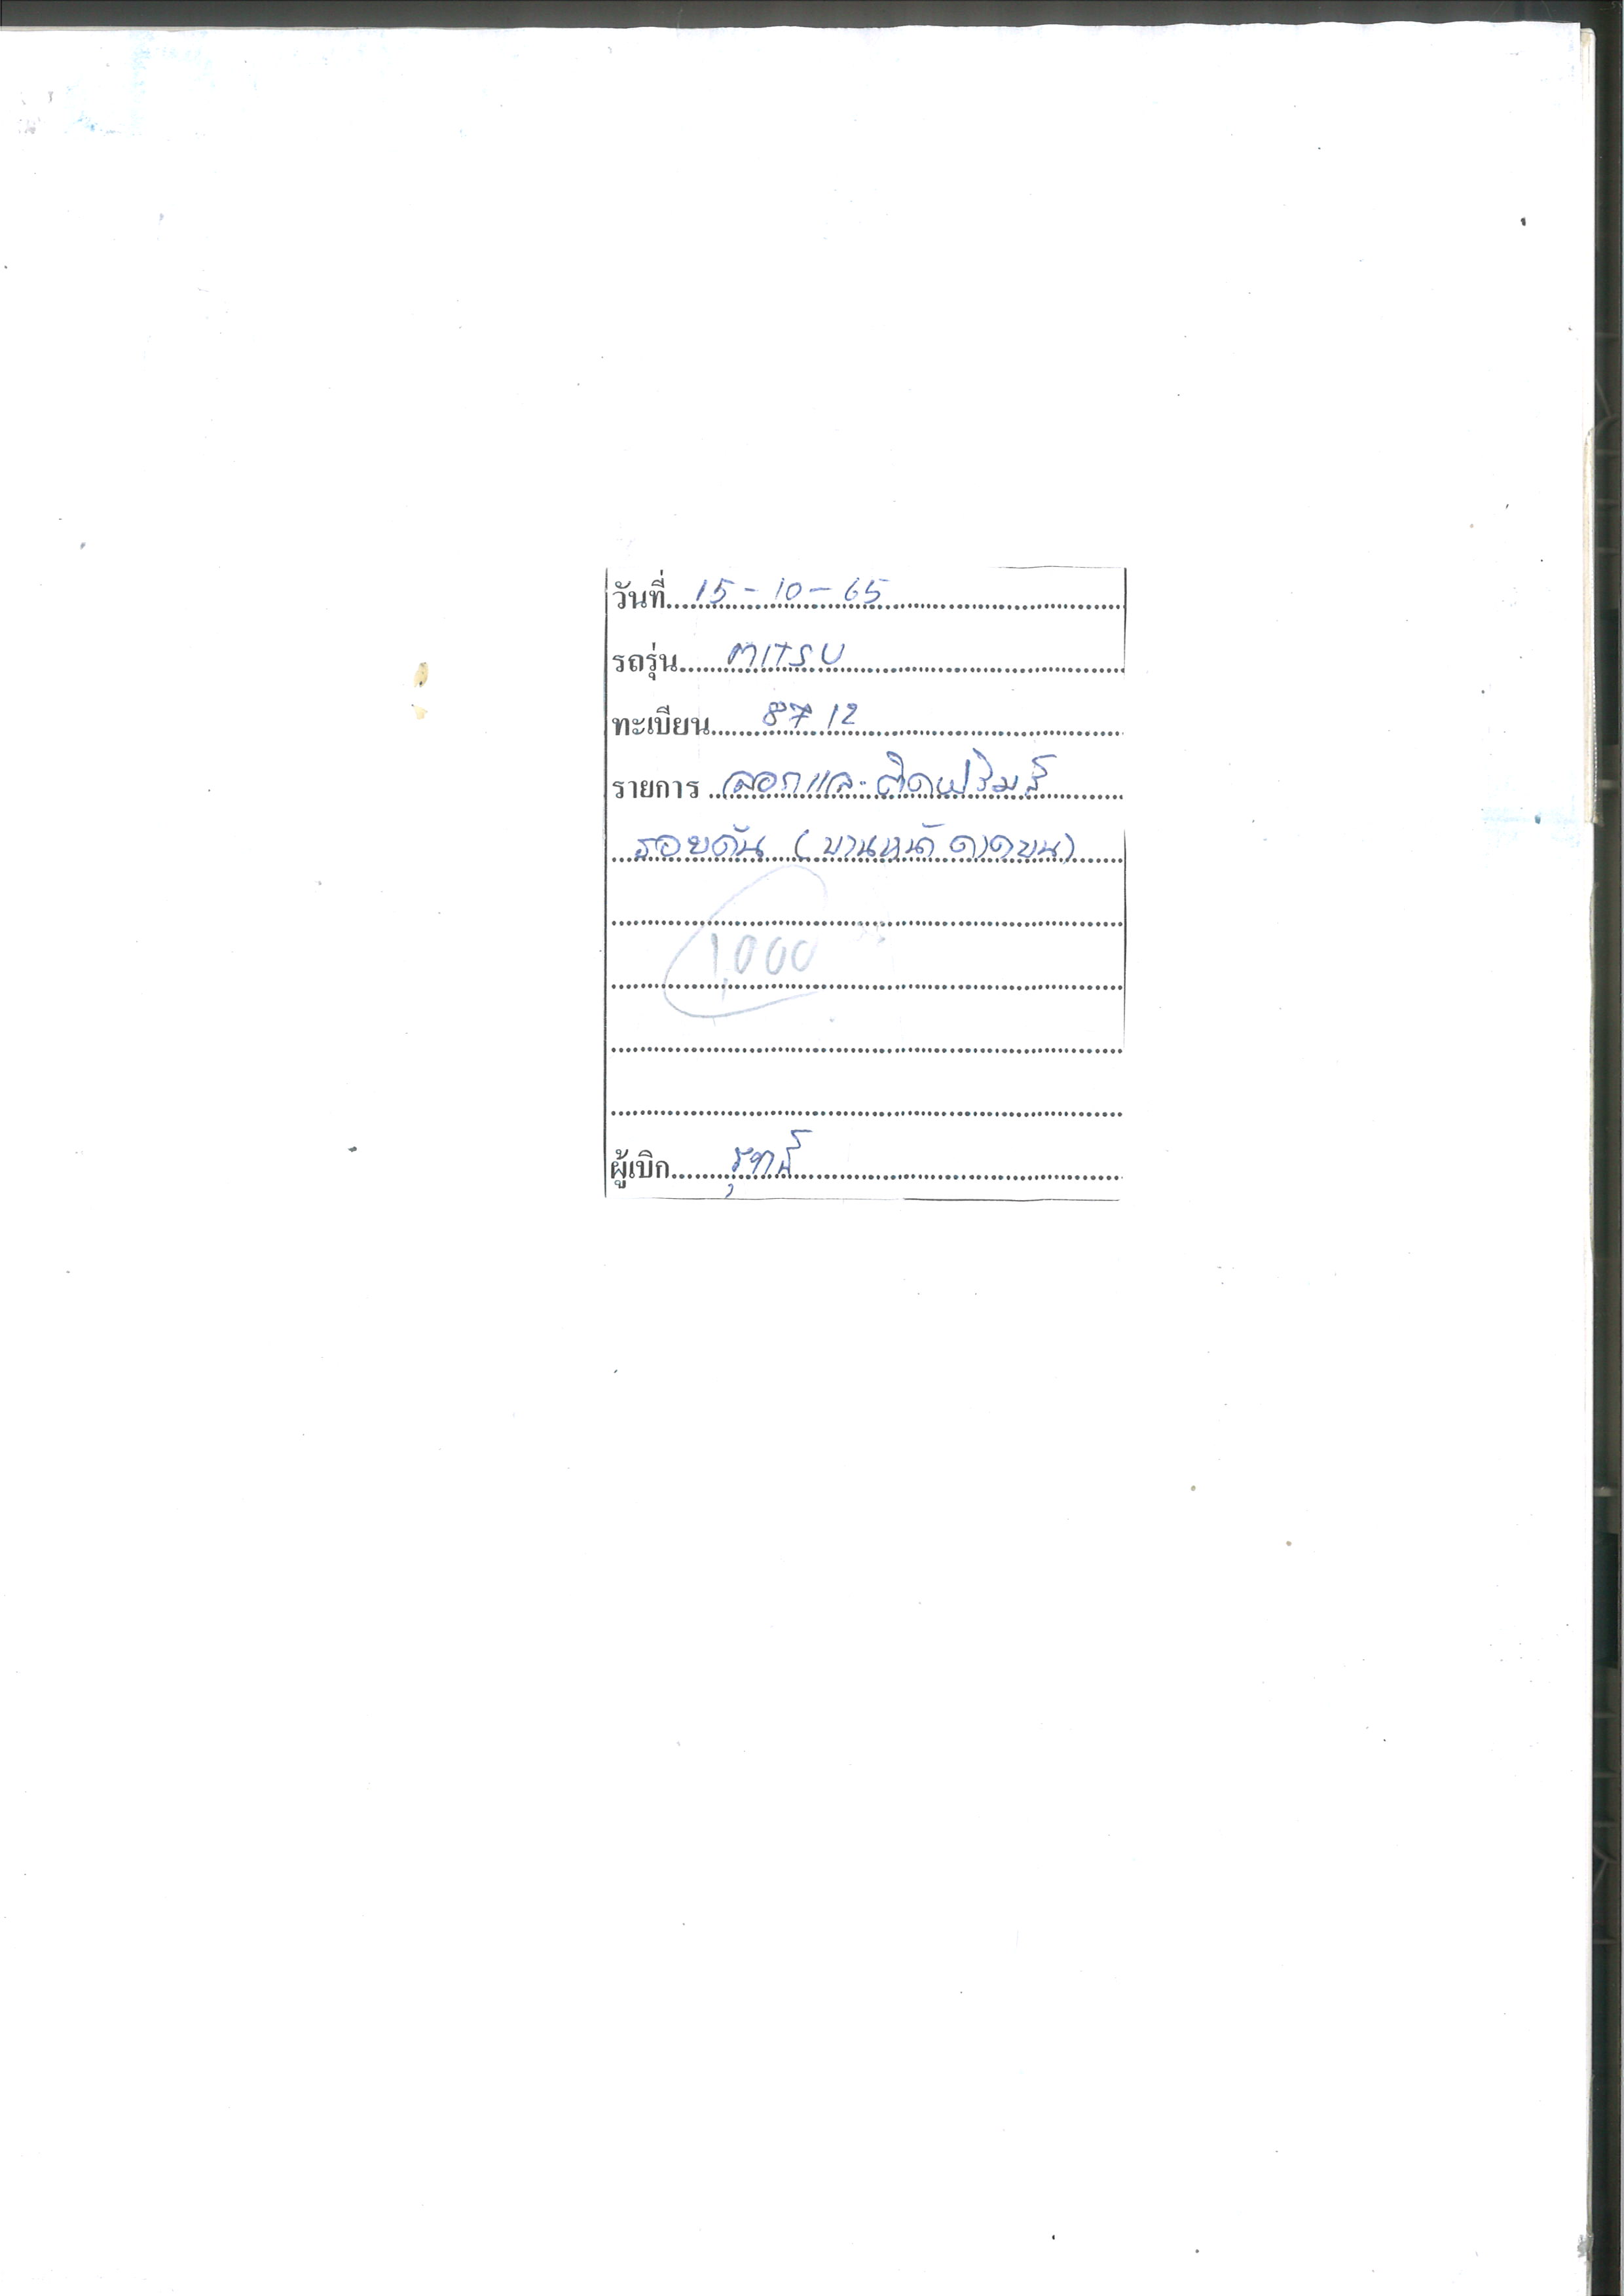 วันที่ 15-10-65
รถรุ่น MITSU
ทะเบียน 8712
รายการ ลอกและติดฟริมส์
รอยดัน (บานหน้า คาดบน)
1,000
ผู้เบิก รุทน์